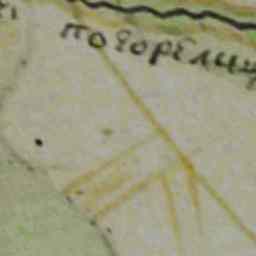 погорелищ